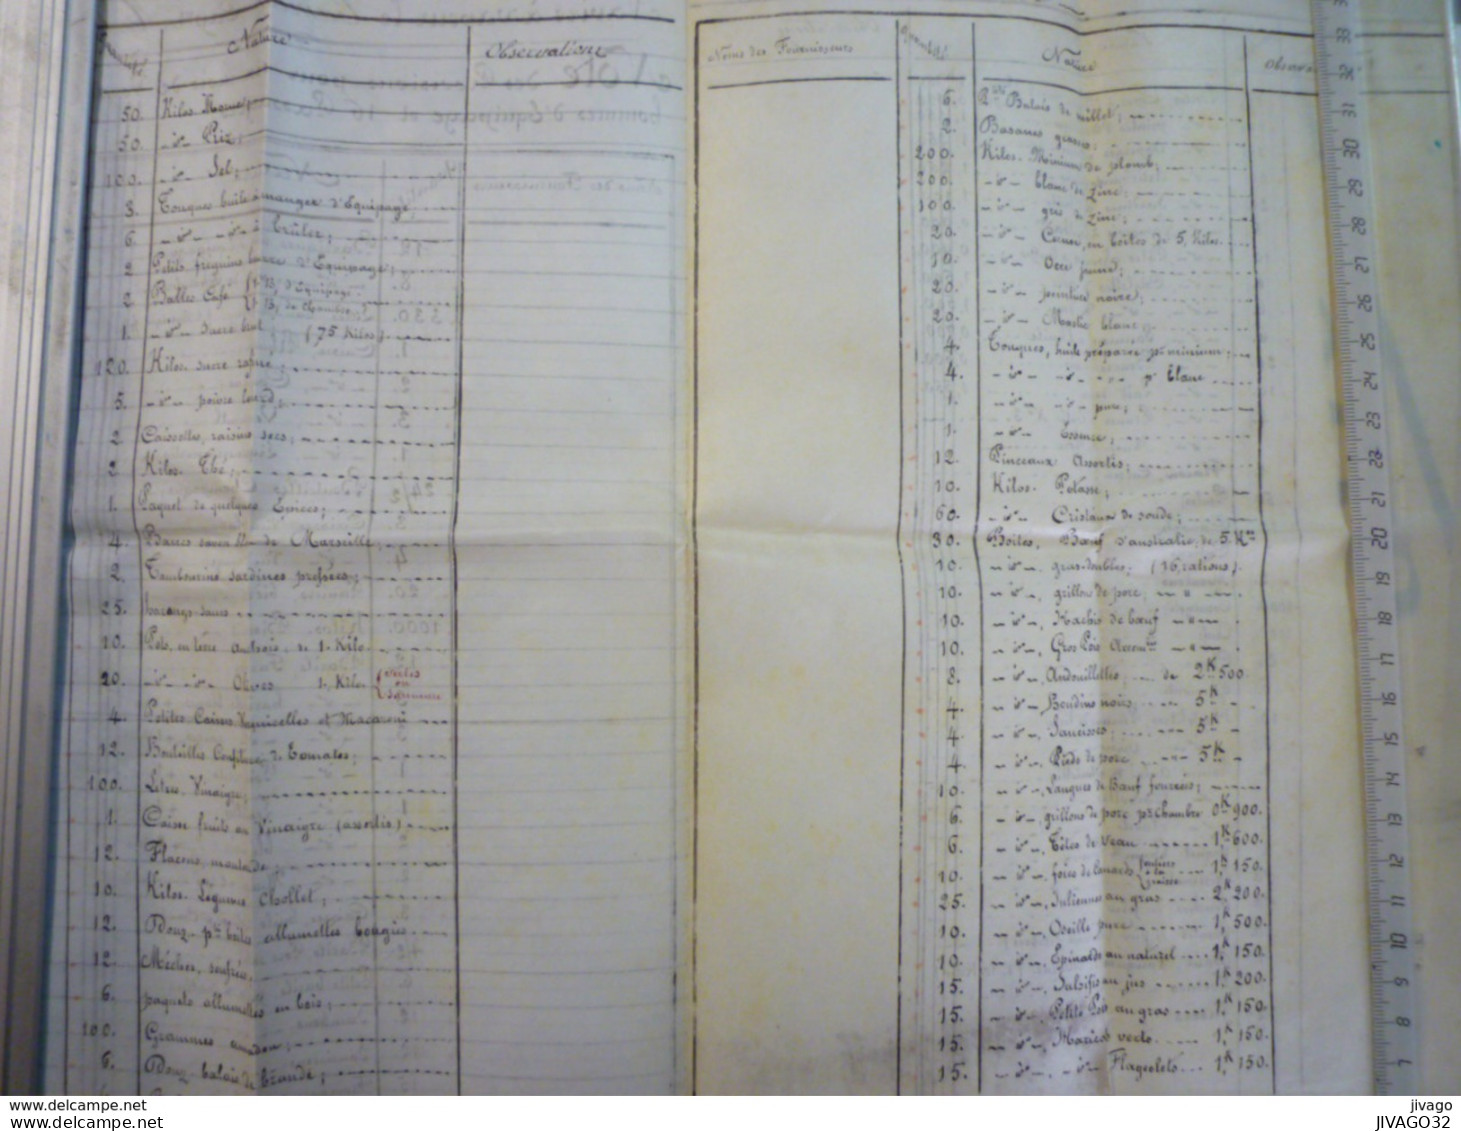 Quantité Nature Observations
50. Kilos. Morue
50. -d°- Riz;
100. -d°- Sel;
3. Touques huile à manger d'Equipage,
6. -d°- -d°- à brûler;
2. Petits frequins beurre d'Equipage;
2. Balles Café (1 B; d'Equipage. 1 B; de Chambre;
1. -d°- sucre brut (75 Kilos)
120. Kilos. sucre raffiné;
5. -d°- poivre lourd;
2. Caissettes, raisins secs;
2. Kilos. Thé;
1. Paquet de quelques Epices;
4. Barres savon de Marseille;
2. Tambourins sardines pressées;
25. harengs saurs
10. Pots, en terre Anchois, de 1. Kilo.
20. -d°- -d°- Olives, 1. Kilo.
4. Petites Caisses Vermicelles et Macaroni
12. Bouteilles Confiture de Tomates;
100. Litres. Vinaigre;
1. Caisse fruits au Vinaigre (assortis)
12. Flacons, moutarde;
10. Kilos. Légumes Chollet;
12. Douz. ptes boites allumettes bougies
12. Mèches, soufrées.
6. paquets allumettes en bois;
100. Grammes amadou;
6. Douz. balais de brande;
Noms des Fournisseurs Quantité Nature
6. Balais de millet;
2. Basanes grasses;
200. Kilos. Minium de plomb;
200. -d°- blanc de zinc;
100. -d°- gris de zinc;
20. -d°- en boites de 5. Kilos.
10. -d°- Ocre jaune;
20. -d°- peinture noire;
20. -d°- Mastic blanc;
4. Touques, huile préparée pr minium;
4. -d°- -d°- pr blanc
1. -d°- -d°- pure;
1. -d°- Essence;
12. Pinceaux Assortis;
10. Kilos. Potasse;
60. -d°- Cristaux de soude;
30. Boites, Bœuf d'australie, de 5. Kos
10. -d°- gras-doubles; (16, rations).
10. -d°-, grillon de porc,
10. -d°-, Hachis de bœuf
10. -d°-, Gros Pois
8. -d°-, Andouillettes; de 2K500
4. -d°-, Boudins noirs 5K
4. -d°-, Saucisses; 5K
4. -d°-, Pieds de porc 5K
10. -d°-, Langues de Bœuf fourrées;
6. -d°-, grillons de porc pr Chambre 0K900.
6. -d°-, Têtes de veau 1K600.
10. -d°-, foies de canards 1K150.
25. -d°-, Juliennes au gras 2K200.
10. -d°-, Oseille pure 1K500.
10. -d°-, Epinards au naturel 1K150.
15. -d°-, Salsifis au jus 1K200.
15. -d°-, Petits Pois au gras 1K150.
15. -d°-, Haricots verts 1K150.
15. -d°-, -d°- Flageolets 1K150.
33
32
31
30
29
28
27
26
25
24
23
22
21
20
19
18
17
16
15
14
13
12
11
10
9
8
7
www.delcampe.net
www.delcampe.net
jivago
JIVAGO32